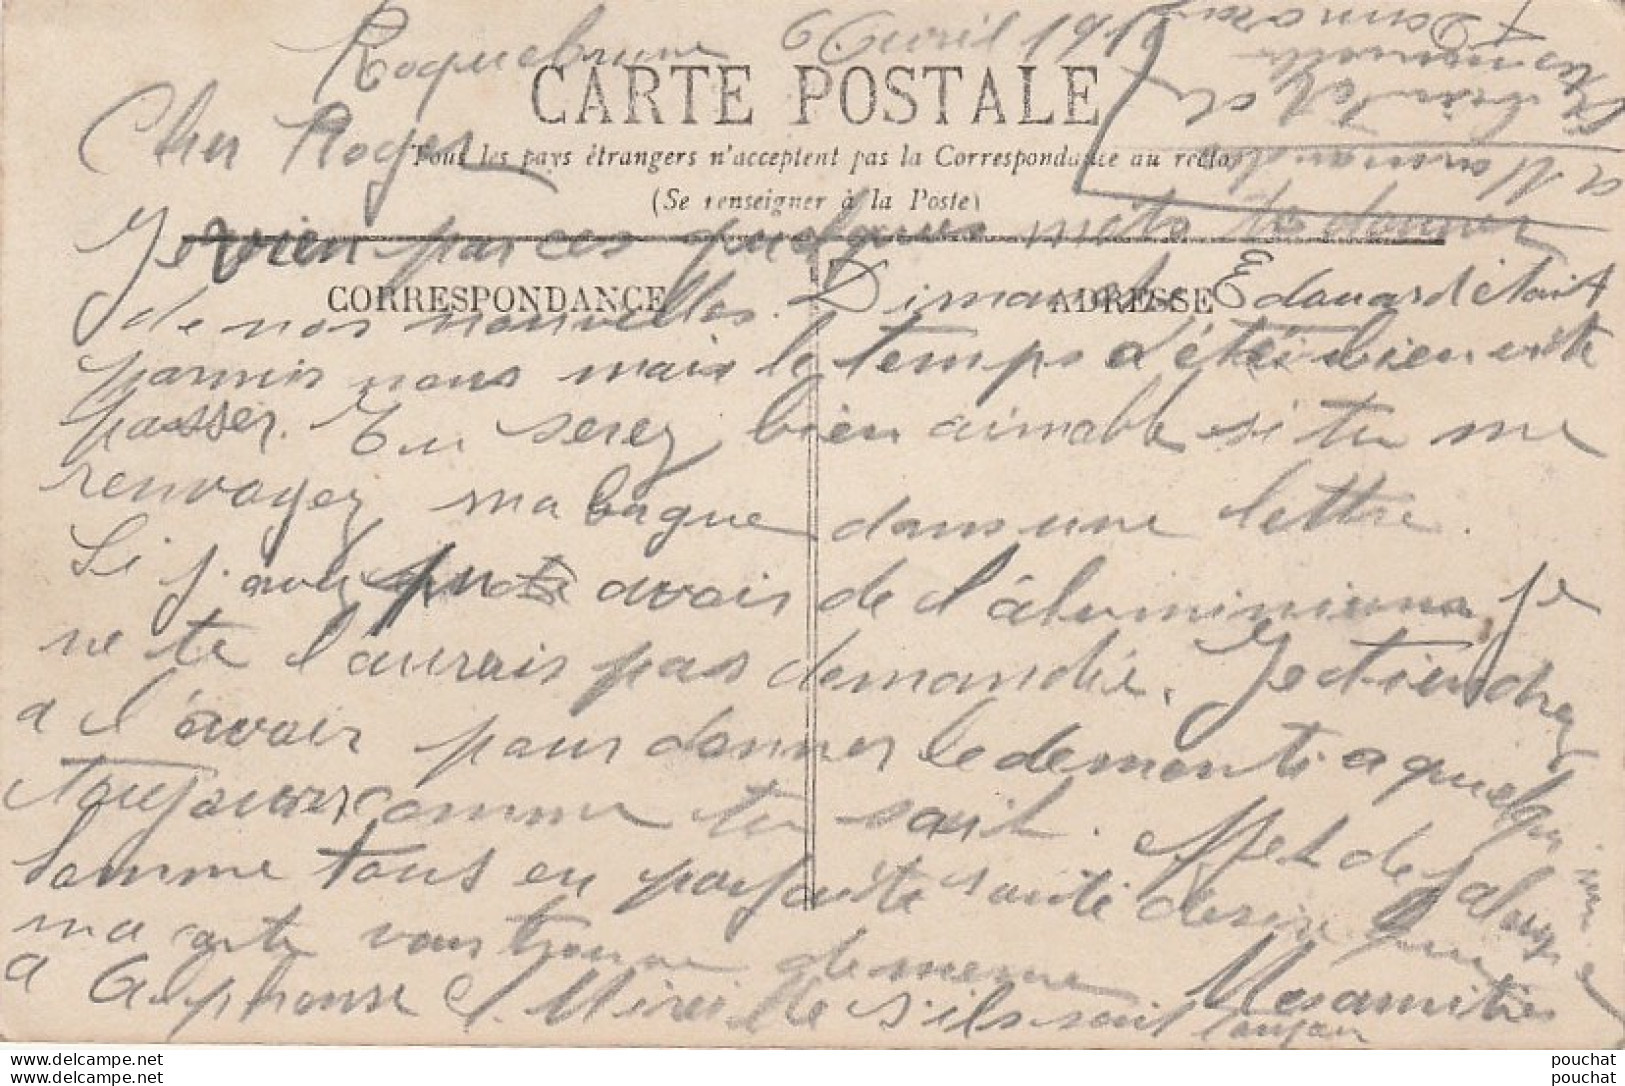 Roquebrune 6 Avril 191
CARTE POSTALE
Cher Roger
Tous les pays étrangers n'acceptent pas la Correspondance au recto
(Se renseigner à la Poste)
Je vien par ces quelques mots te donner
CORRESPONDANCE
ADRESSE
de nos nouvelles. Dimanche Edouard était
parmis nous mais le temps d'été bien vite
passer. Tu serez bien aimable si tu me
renvoyez ma bague dans une lettre.
Si j. avais de l'aluminium, je
ne te l'aurais pas demandée. Je tiendrez
a l'avoir pour donner le dementi a quelqu'un
toujours comme tu sait. Effet de jalousie
Somme tous en parfaite santé desire que
ma carte vous trouve de meme
Mesamitiés
a Alphonse et Mireille s'ils sont toujour
a Marmande
nouvelle
pouchat
www.delcampe.net
pouchat
www.delcampe.net